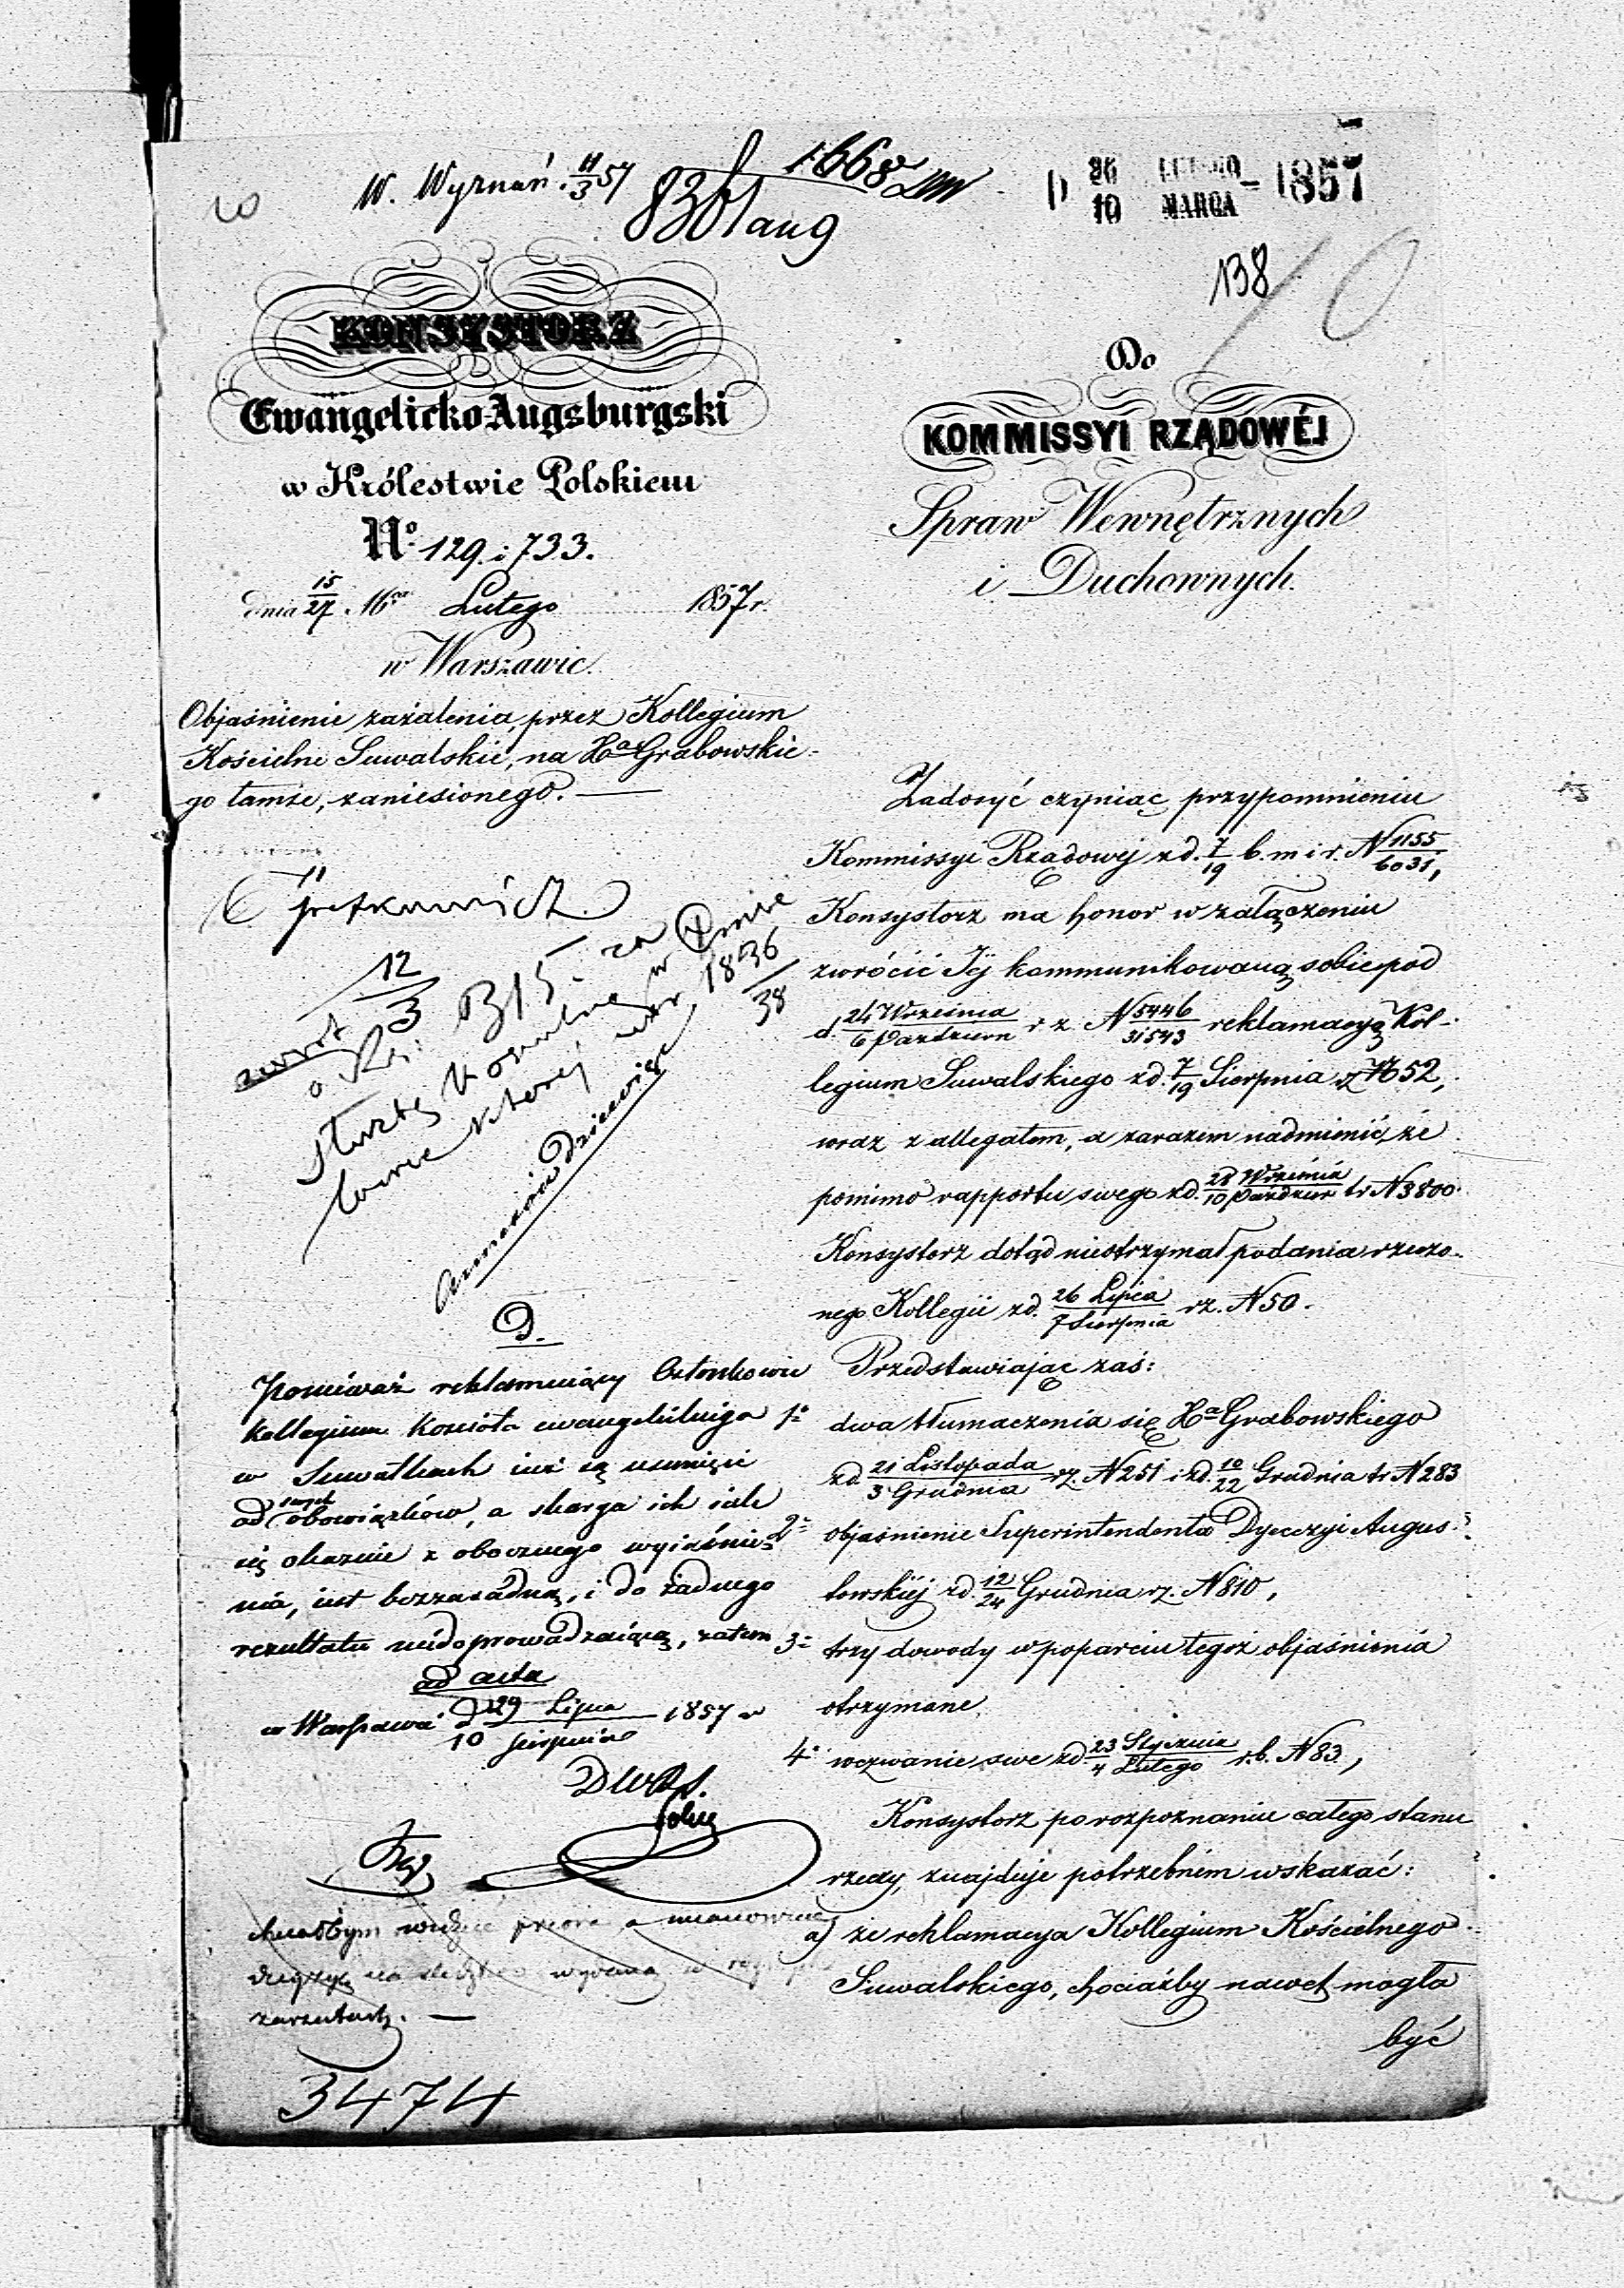 W. Wyznań. 11/3 57
1668
8361 aug
D 26 LUTEGO
10 MARCA – 1857
138
KONSYSTORZ
Ewangelicko-Augsburgski
w Królestwie Polskiem
No. 129. i 733.
dnia 15/27 Mca Lutego 1857 r.
w Warszawie.
Objaśnienie zażalenia, przez Kollegium
Kościelne Suwalskie, na Xa Grabowskie-
go tamże, zaniesionego. —
12/3
1836/38
D.
Ponieważ reklamuiący Członkowie
Kollegium Kościoła ewangelickiego
w Suwałkach iuż są usunięci
od swych obowiązków, a skarga ich iak
się okazuie z obocznego wyiaśnie-
nia, iest bezzasadną, i do żadnego
rezultatu niedoprowadzaiącą, zatem
ad acta
w Warszawie d 29 Lipca / 10 Sierpnia 1857 r
chciałbym widzieć
zarzutach. —
3474
Do
KOMMISSYI RZĄDOWÉJ
Spraw Wewnętrznych
i Duchownych.
Zadosyć czyniąc przypomnieniu
Kommissyi Rządowej z d. 7/19 b. m i r. N 1155/6031,
Konsystorz ma honor w załączeniu
zwrócić Jéj kommunikowaną sobie pod
d. 24 Września / 6 Paździer r z. N 5446/31543 reklamacyą Kol-
legium Suwalskiego z d. 7/19 Sierpnia r z N 52,
wraz z allegatem, a zarazem nadmienić, że
pomimo rapportu swego z d. 28 Września / 10 Paździer t r N 3800
Konsystorz dotąd nieotrzymał podania rzeczo-
nego Kollegii z d. 26 Lipca / 7 Sierpnia r z. N 50.
Przedstawiając zaś:
1o dwa tłumaczenia się Xa Grabowskiego
z d 21 Listopada / 3 Grudnia r z. N 251 i z d. 10/22 Grudnia t r N 283
2o objaśnienie Superintendenta Dyecezyi Augus-
towskiéj z d. 12/24 Grudnia r z. N 810,
3o trzy dowody w poparciu tegoż objaśnienia
otrzymane,
4o wezwanie swe z d 23 Stycznia / 4 Lutego r. b. N 83,
Konsystorz po rozpoznaniu całego stanu
rzeczy, znajduje potrzebném wskazać:
a) że reklamacya Kollegium Kościelnego
Suwalskiego, chociażby nawet mogła
być